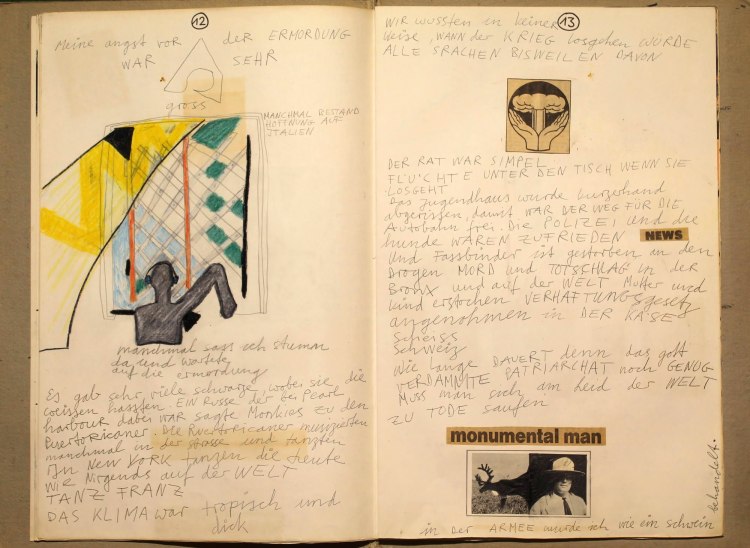 12
Meine angst vor der ERMORDUNG
WAR SEHR
gross
MANCHMAL BESTAND
HOFFNUNG AUF
ITALIEN
manchmal sass ich stumm
da und wartete
auf die ermordung
Es gab sehr viele schwarze, wobei sie die
weissen hassten. EIN RUSSE der bei Pearl
harbour dabei WAR sagte Monkies zu den
Puertoricaner. Die Puertoricaner musizierten
manchmal in der strasse und tanzten
In NEW YORK tanzen die heute
wie Nirgends auf der WELT
TANZ FRANZ
DAS KLIMA war tropisch und
dick
13
WIR wussten in keiner
Weise, WANN der KRIEG losgehen WÜRDE
ALLE SRACHEN BISWEILEN DAVON
DER RAT WAR SIMPEL
FLÜCHTE UNTER DEN TISCH WENN SIE
LOSGEHT
Das Jugendhaus wurde kurzerhand
abgerissen, damit WAR DER WEG FÜR DIE
Autobahn frei. Die POLIZEI und die
hunde WAREN ZUFRIEDEN NEWS
Und Fassbinder ist gestorben an den
Drogen MORD und TOTSCHLAG in der
Bronx und auf der WELT Mutter und
Kind erstochen VERHAFTUNGSgesetz
angenommen in DER KÄSE
Scheiss
Schweiz
Wie lange DAUERT denn das gott
VERDAMMTE PATRIARCHAT noch GENUG
MUSS man sich am leid der WELT
ZU TODE saufen
monumental man
in der ARMEE wurde ich wie ein schwein
behandelt.